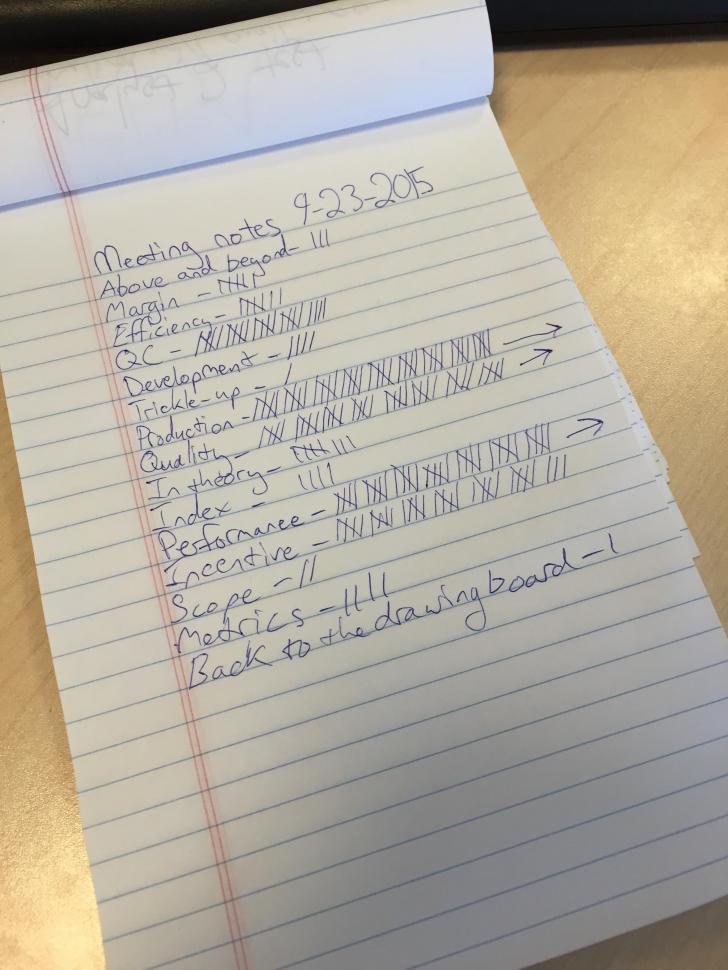 Meeting notes 9-23-2015
Above and beyond - |||
Margin - 
Efficiency - 
QC - 
Development - ||||
Trickle-up - /
Production - →
Quality - →
In theory - 
Index - ||||
Performance - →
Incentive - 
Scope - ||
Metrics - ||||
Back to the drawing board - |